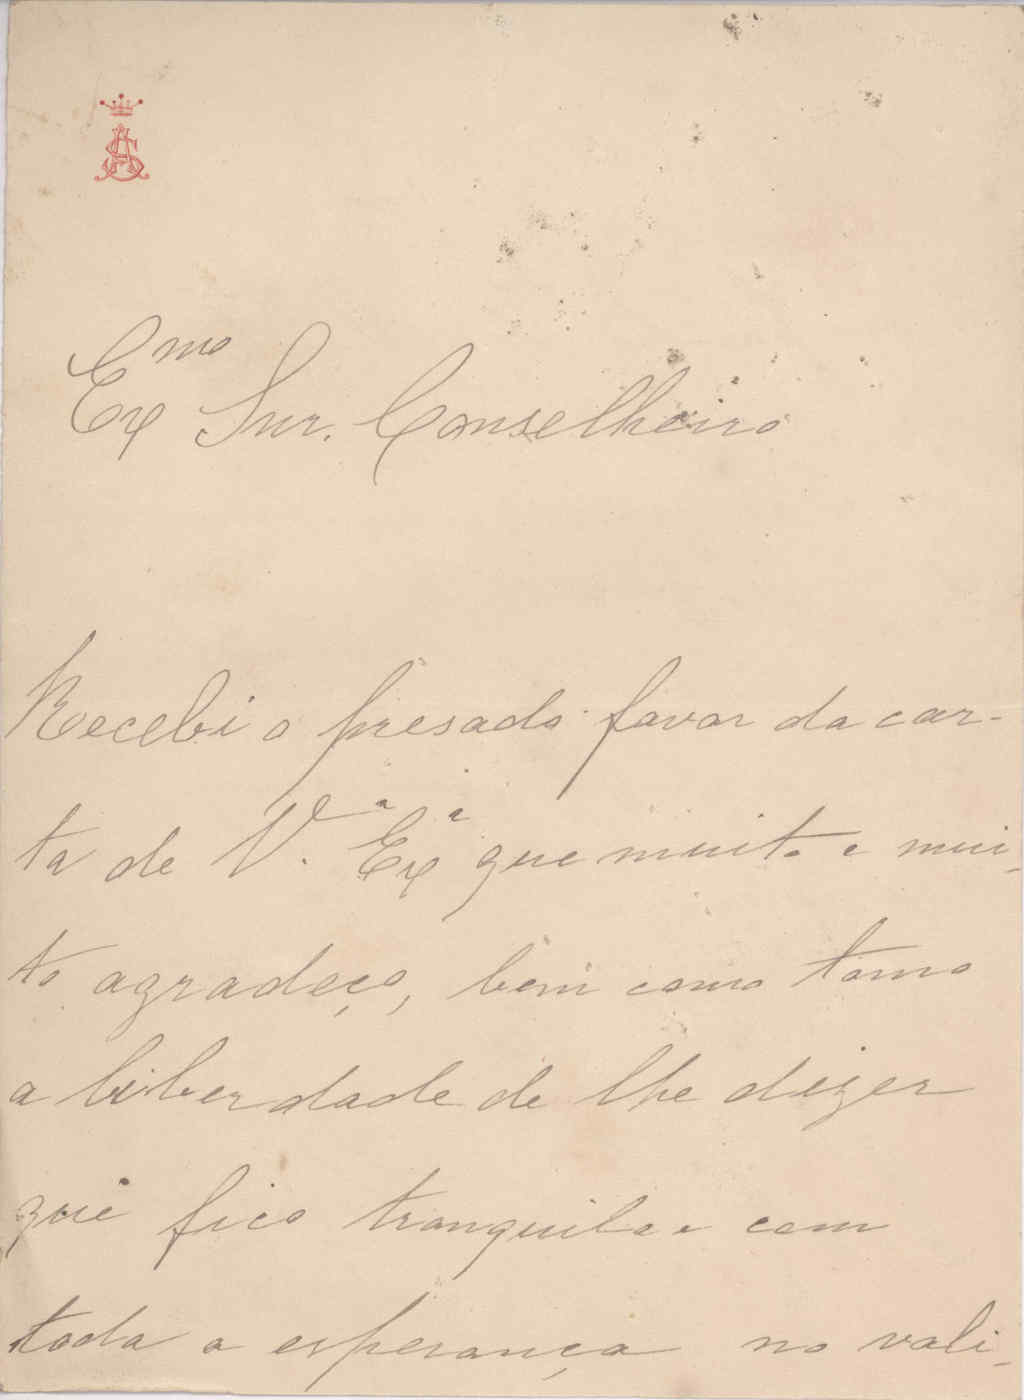 AS
Exmo Snr. Conselheiro
Recebi o presado favor da car-
ta de V.ª Exª que muito e mui-
to agradeço, bem como tomo
a liberdade de lhe dizer
que fico tranquila e com
toda a esperança no vali-